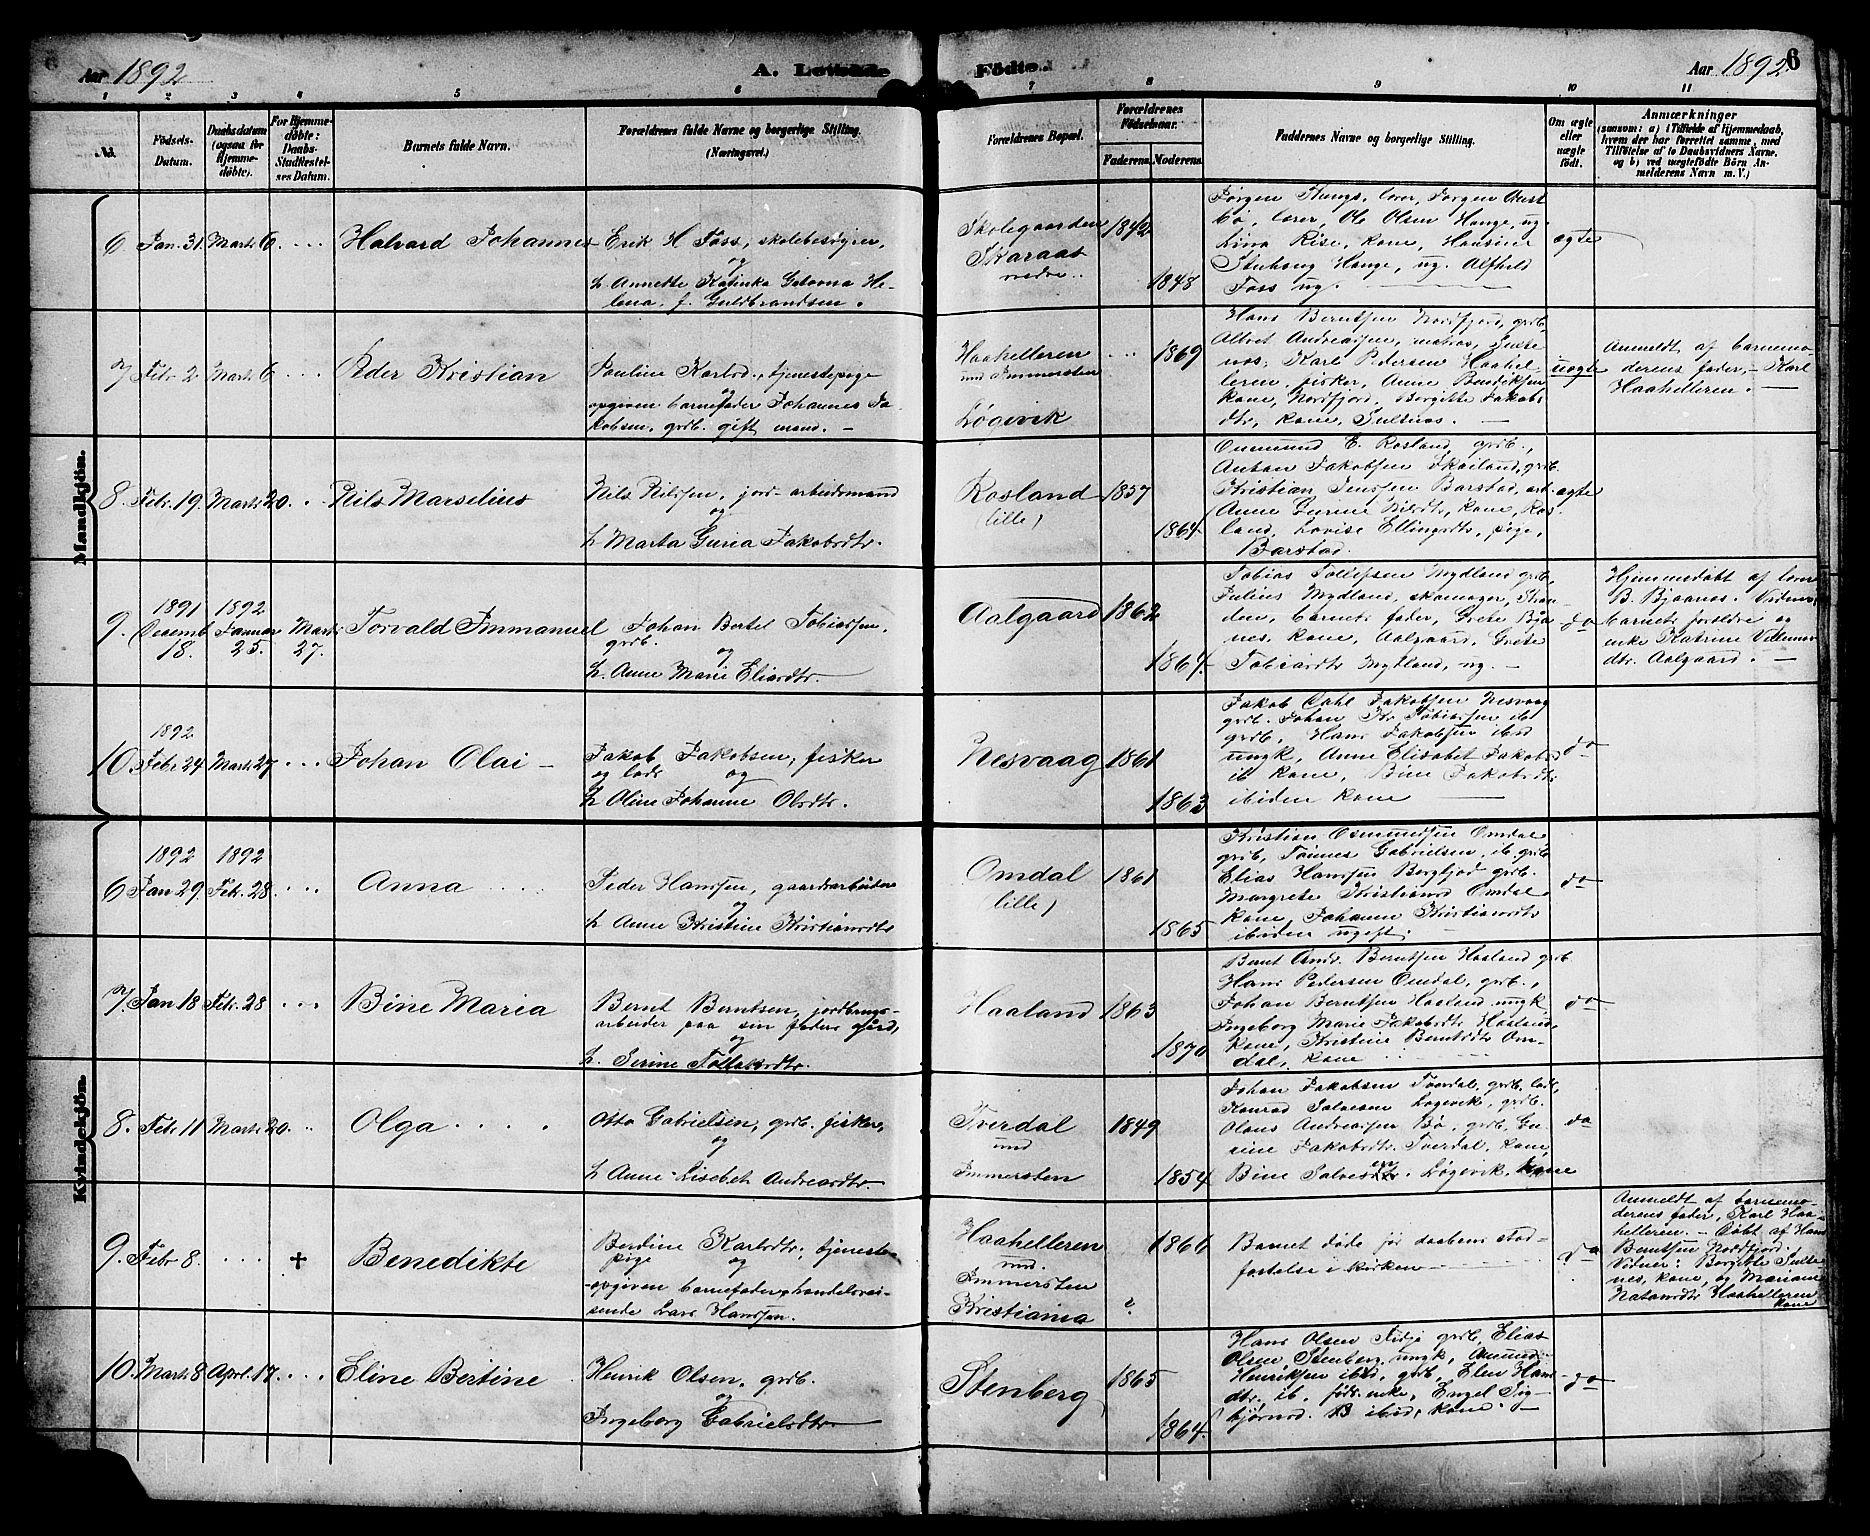 Aar 1892
A. Levende
Fødte.
Aar 1892
6
1 2 3 4 5 6 7 8 9 10 11
No.
Fødsels-
Datum.
Daabsdatum
(ogsaa for
Hjemme-
døbte).
For Hjemme-
døbte:
Daabs-
Stadfæstel-
ses Datum.
Barnets fulde Navn.
Forældrenes fulde Navne og borgerlige Stilling.
(Næringsvei.)
Forældrenes Bopæl.
Forældrenes
Fødselsaar.
Faderens.
Moderens.
Faddernes Navne og borgerlige Stilling.
Om ægte
eller
uægte
født.
Anmærkninger
(saasom: a) i Tilfælde af Hjemmedaab,
hvem der har forrettet samme, med
Tilføielse af to Daabsvidners Navne.
og b) ved uægtefødte Børn An-
melderens Navn m. V.)
Mandkjön.
6 Jan. 31. Marts 6.
Halvard Johannes
Erik H Foss, skolebestyrer,
og
h. Annette Katinka
lena, f. Guldbrandsen.
Skolegaarden
Skaraas
nedre
1842
1848
Jørgen Stungs, lærer, Jørgen
bø, lærer, Ole Olsen Hauge, ug.
Lina Rise, kone, Hansine
Stuhaug Hauge, ug. Alfhild
Foss ug.
ægte
7 Febr 2. Marts 6
Peder Kristian
Pauline Karlsd., tjenestepige
og
opgiven barnefader Johannes Ja-
kobsen, grdb. gift mand.
Haahelleren
und Immersten
Løgevik
1869
Hans Berntsen Nordfjord, grdb,
Albret Andreassen, matros,
nes, Karl Pedersen Haahel-
leren, fisker, Anne Bendiksen
kone, Nordfjord, Borgitte Jakobs
dtr, kone,
uægte
Anmeldt af barnemo-
derens fader, - Karl
Haahelleren.
8. Febr. 19. Marts 20.
Nils Marselius
Nils Nilssen, jord-arbeidsmand
og
h Marta Guria Jakobsdtr.
Rosland
(lille)
1857
1864.
Onmund E. Rosland grdb.,
Antan Jakobsen Skailand, grdb.
Kristian Jenssen Barstad, arb.
Anne Gurine Nilsdtr, kone, Ros-
land, Lovise Ellingsdtr, pige,
Barstad.
ægte
9.
1891
Decemb
18.
1892
Januar
25.
Marts
27.
Torvald Immanuel
Johan Bertel Tobiassen,
grdb.
og
h. Anne Marie Eliasdtr.
Aalgaard
1862
1864.
Tobias Tollefsen Mydland grdb,
Julius Mydland, skomager, Stran-
den, barnets fader, Grete Bjå-
nes, kone, Aalgaard, Grete
Tobiasdtr Mydland, ug.
do
Hjemmedøbt af lærer
B. Bjaanes. Vidner,
barnets forældre og
enke Katrine Villums-
dtr. Aalgaard.
10
1892
Febr 24 Marts 27
Johan Olai
Jakob Jakobsen, fisker
og lods og
h Oline Johanne Olsdtr.
Nesvaag
1861
1863
Jakob Dahl Jakobsen Nesvaag
grdb. Johan Kr Tobiassen ib
grdb, Hans Jakobsen ibid
ungk, Anne Elisabet Jakobsd
ib kone, Bine Jakobsdtr
ibiden kone
do
Kvindekjön.
6
1892
Jan 29.
1892
Febr. 28
Anna
Peder Hanssen, gaardsarbeider
og
h Anne Kristine Kristiansdtr
Omdal
(lille)
1861
1865
Kristian Osmundsen Omdal
grdb, Tønnes Gabrielsen, ib grdb
Elias Hanssen Bergfjod grdb.
Margrete Kristiansd Omdal
kone, Johanne Kristiansdtr
ibiden ugift.
do
7. Jan 18 Febr. 28
Bine Maria
Bernt Berntsen, jordbrugs-
arbeider paa sin faders gård,
og
h. Serine Tollaksdtr.
Haaland
1863
1870
Bernt Andr. Berntsen Haaland grdb
Hans Pedersen Omdal, grdb.,
Johan Berntsen Haaland ungk,
Ingeborg Marie Jakobsdtr Haaland,
kone, Kristine Berntsdtr Om-
dal, kone
do
8. Febr. 11 Marts 20.
Olga
Otto Gabrielsen, grdb. fisker,
og
h Anne-Lisebet Andreasdtr.
Tverdal
und
Immersten
1849
1854
Johan Jakobsen Tverdal, grdb, lods,
Konrad Salvesen Løgevik, grdb.
Olaus Andreassen Bø, grdb, Gu-
rine Jakobsdtr. Tverdal, kone,
Bine Salvesen. Løgevik, kone
do
9. Febr 8.
+
Benedikte
Berdine Karlsdtr, tjeneste-
pige og
opgiven barnefader, handelsrei-
sende Lars Hanssen.
Haahelleren
und.
Immersten
Kristiania
?
1866
Barnet døde før daabens stad-
fæstelse i kirken
do
Anmeldt af barnemo-
derens fader, Karl Haa-
helleren. - Døbt af Hans
Berntsen Nordfjord.
Vidner: Borgitte
nes, kone, og Mariane
Natansdtr Haahelleren
kone
10. Marts 8 April. 17.
Eline Bertine
Henrik Olsen, grdb.
og
Ingeborg Gabrielsdtr
Stenberg
1865
1864.
Hans Olsen Fidje grdb, Elias
Olsen, Stenberg, ungk, Anund
Henriksen ibid, grdb, Elen Hans
dtr. ib, føds.enke, Engel Sig-
bjørnsd. B ibid, kone.
do